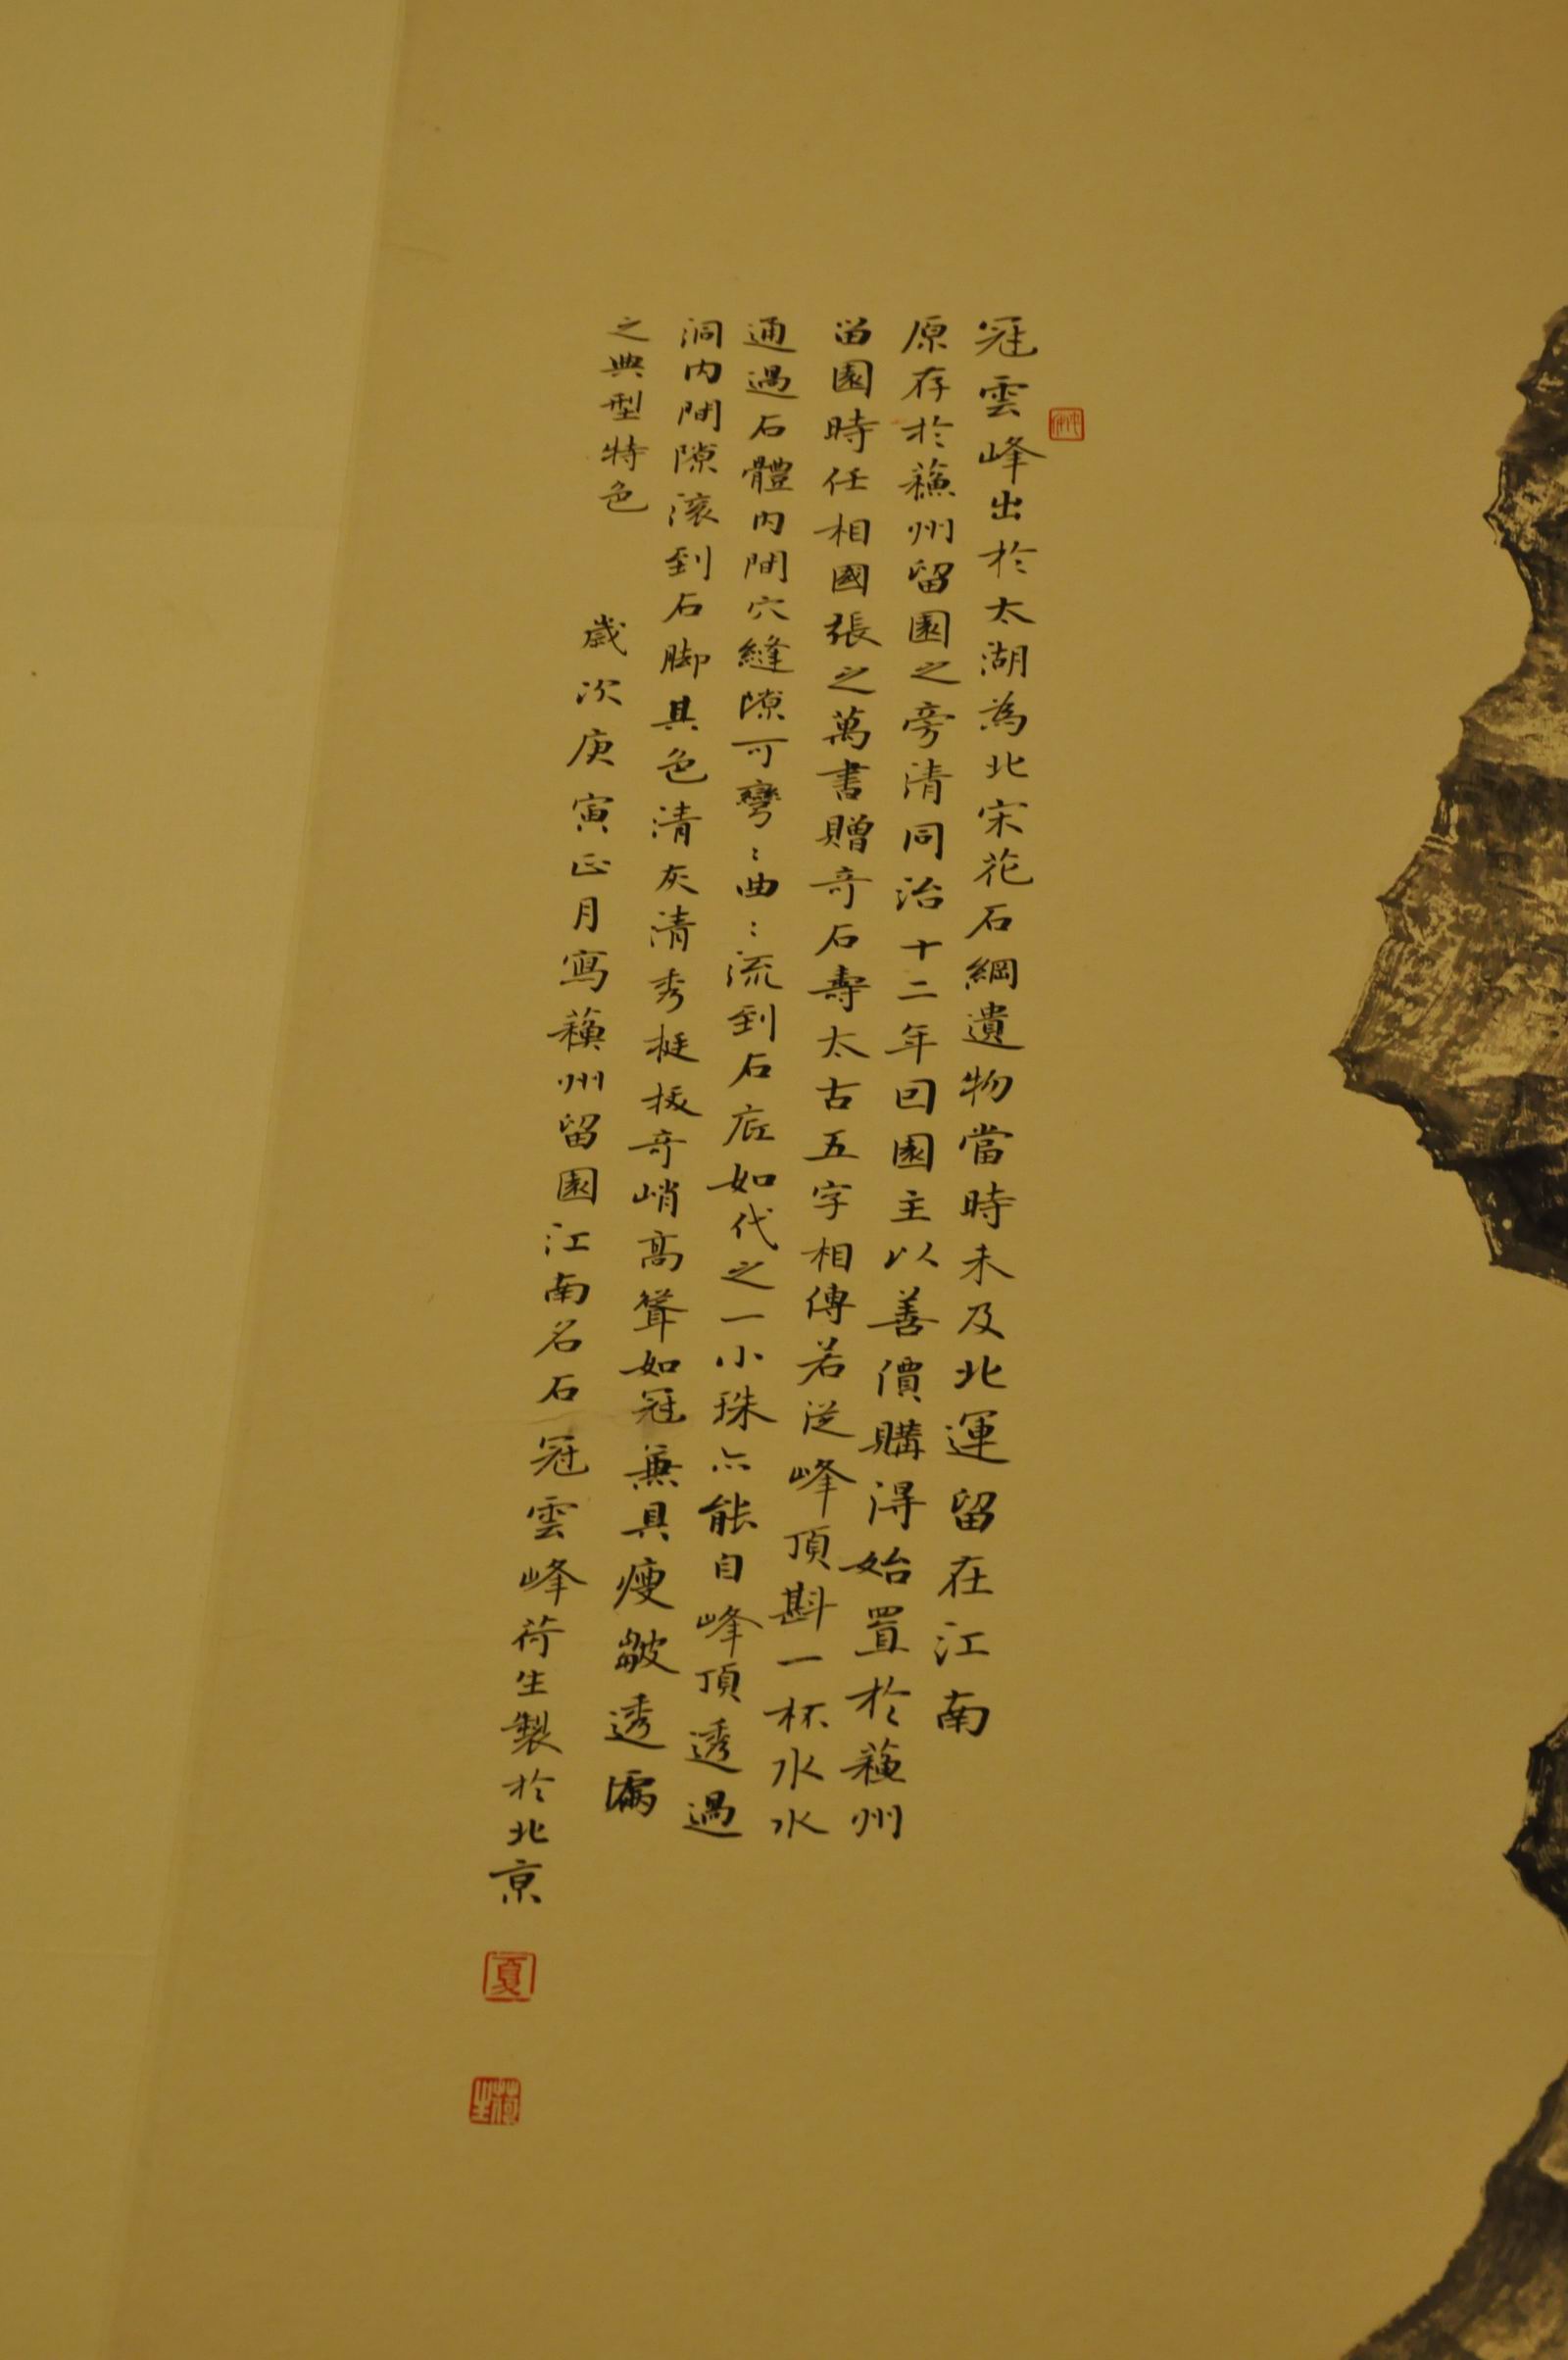 冠雲峰出於太湖為北宋花石綱遺物當時未及北運留在江南
原存於蘓州留園之旁清同治十二年回園主以善價購得始置於蘓州
留園時任相國張之萬書贈奇石壽太古五字相傳若從峰頂斟一杯水水
通過石體内間穴縫隙可彎：曲：流到石底如代之一小珠亦能自峰頂透過
洞内間隙滚到石脚其色清灰清秀挺拔奇峭高聳如冠兼具瘦皺透漏
之典型特色
歲次庚寅正月寫蘓州留園江南名石冠雲峰荷生製於北京
夏
荷生